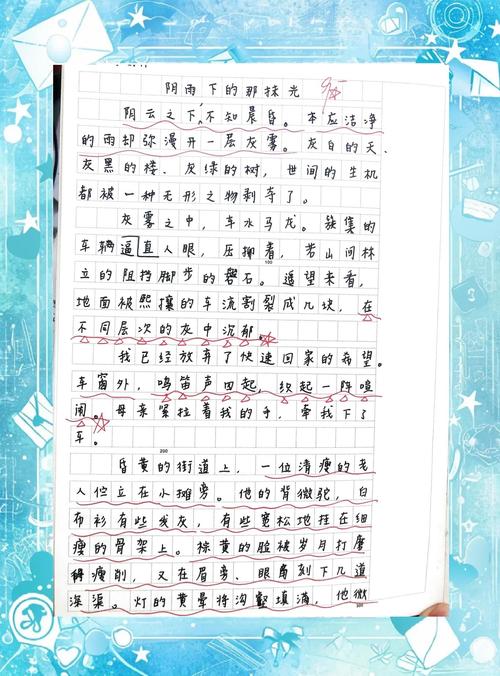 阴雨下的那抹光
阴云之下,不知晨昏。本应洁净
的雨却弥漫开一层灰雾。灰白的天、
灰黑的楼、灰绿的树,世间的生机
都被一种无形之物剥夺了。
灰雾之中,车水马龙。簇集的
车辆逼直人眼,压抑着,若山间林
立的阻挡脚步的磐石。遥望未看,
100
地面被熙攘的车流割裂成几块,在
不同层次的灰中沉郁。
我已经放弃了快速回家的希望。
车窗外,鸣笛声四起,织起一阵喧
闹。母亲紧拉着我的手,牵我下了
车。
200
昏黄的街道上,一位清瘦的老
人伫立在小摊旁。他的背微驼,白
布衫有些残灰,有些宽松地挂在细
瘦的骨架上。棕黄的脸被岁月打磨
得瘦削,又在眉旁、眼角刻下几道
深渠。灯的黄晕将沟壑填满,他微
300